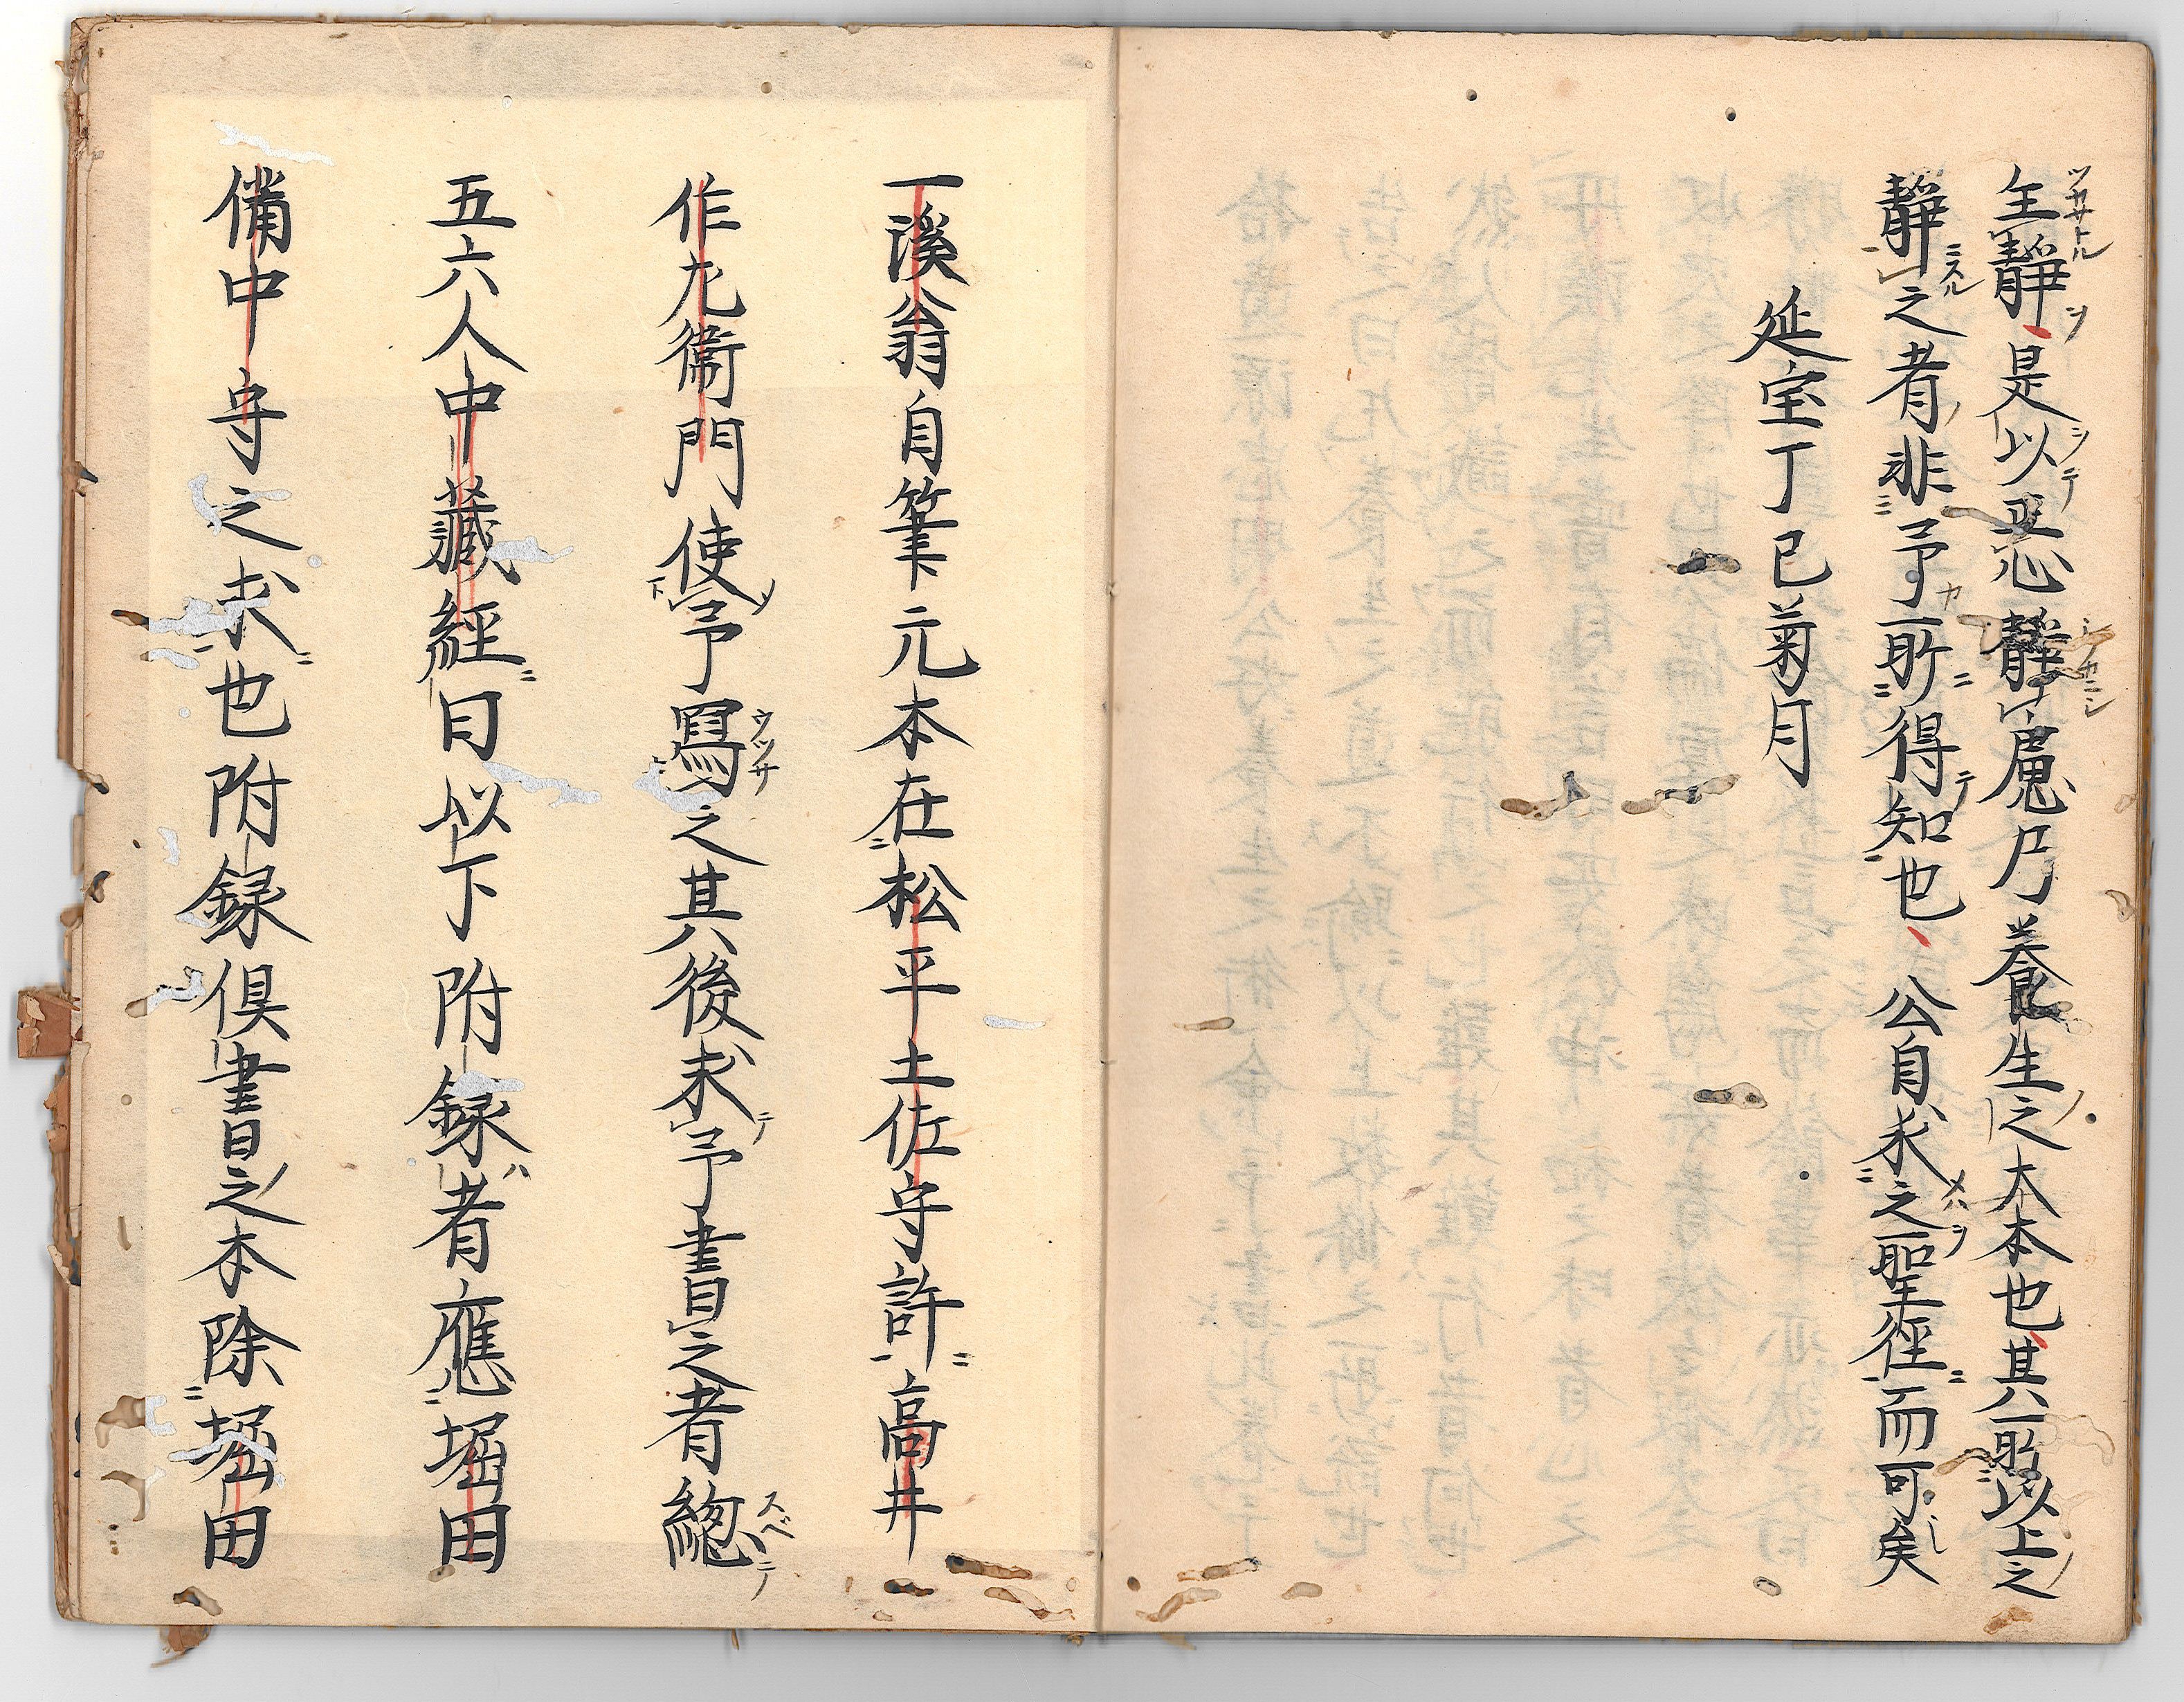 全静是以惡静魔乃養生之大本也其所以上之
静之者非予所得知也公自求之聖徑而可矣
延宝丁巳菊月
一溪翁自筆元本在松平土佐守許高井
作左衛門使予寫之其後求予書之者總
五六人中藏經曰以下附録者應堀田
備中守之求也附録倶書之本除堀田